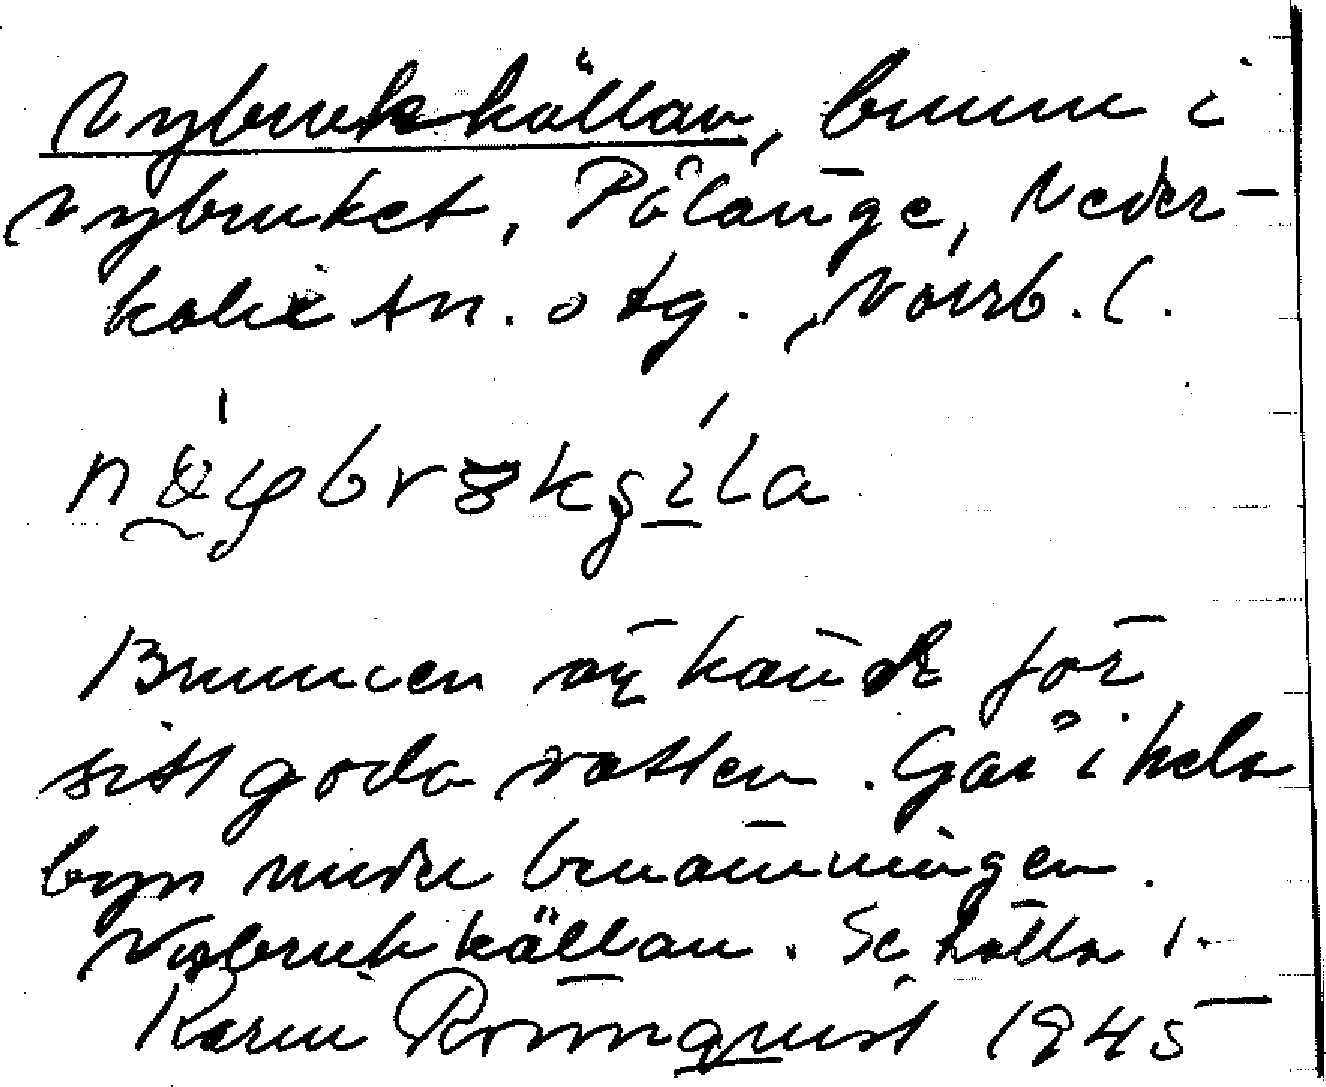 Nybrukkällan, brunn i
Nybruket, Pålänge, Neder-
kalix sn. o tg. Norrb. l.
Brunnen är känd för
sitt goda vatten. Går i hela
byn under benämningen
Nybrukkällan. Se källa 1.
Karin Rönnqvist 1945